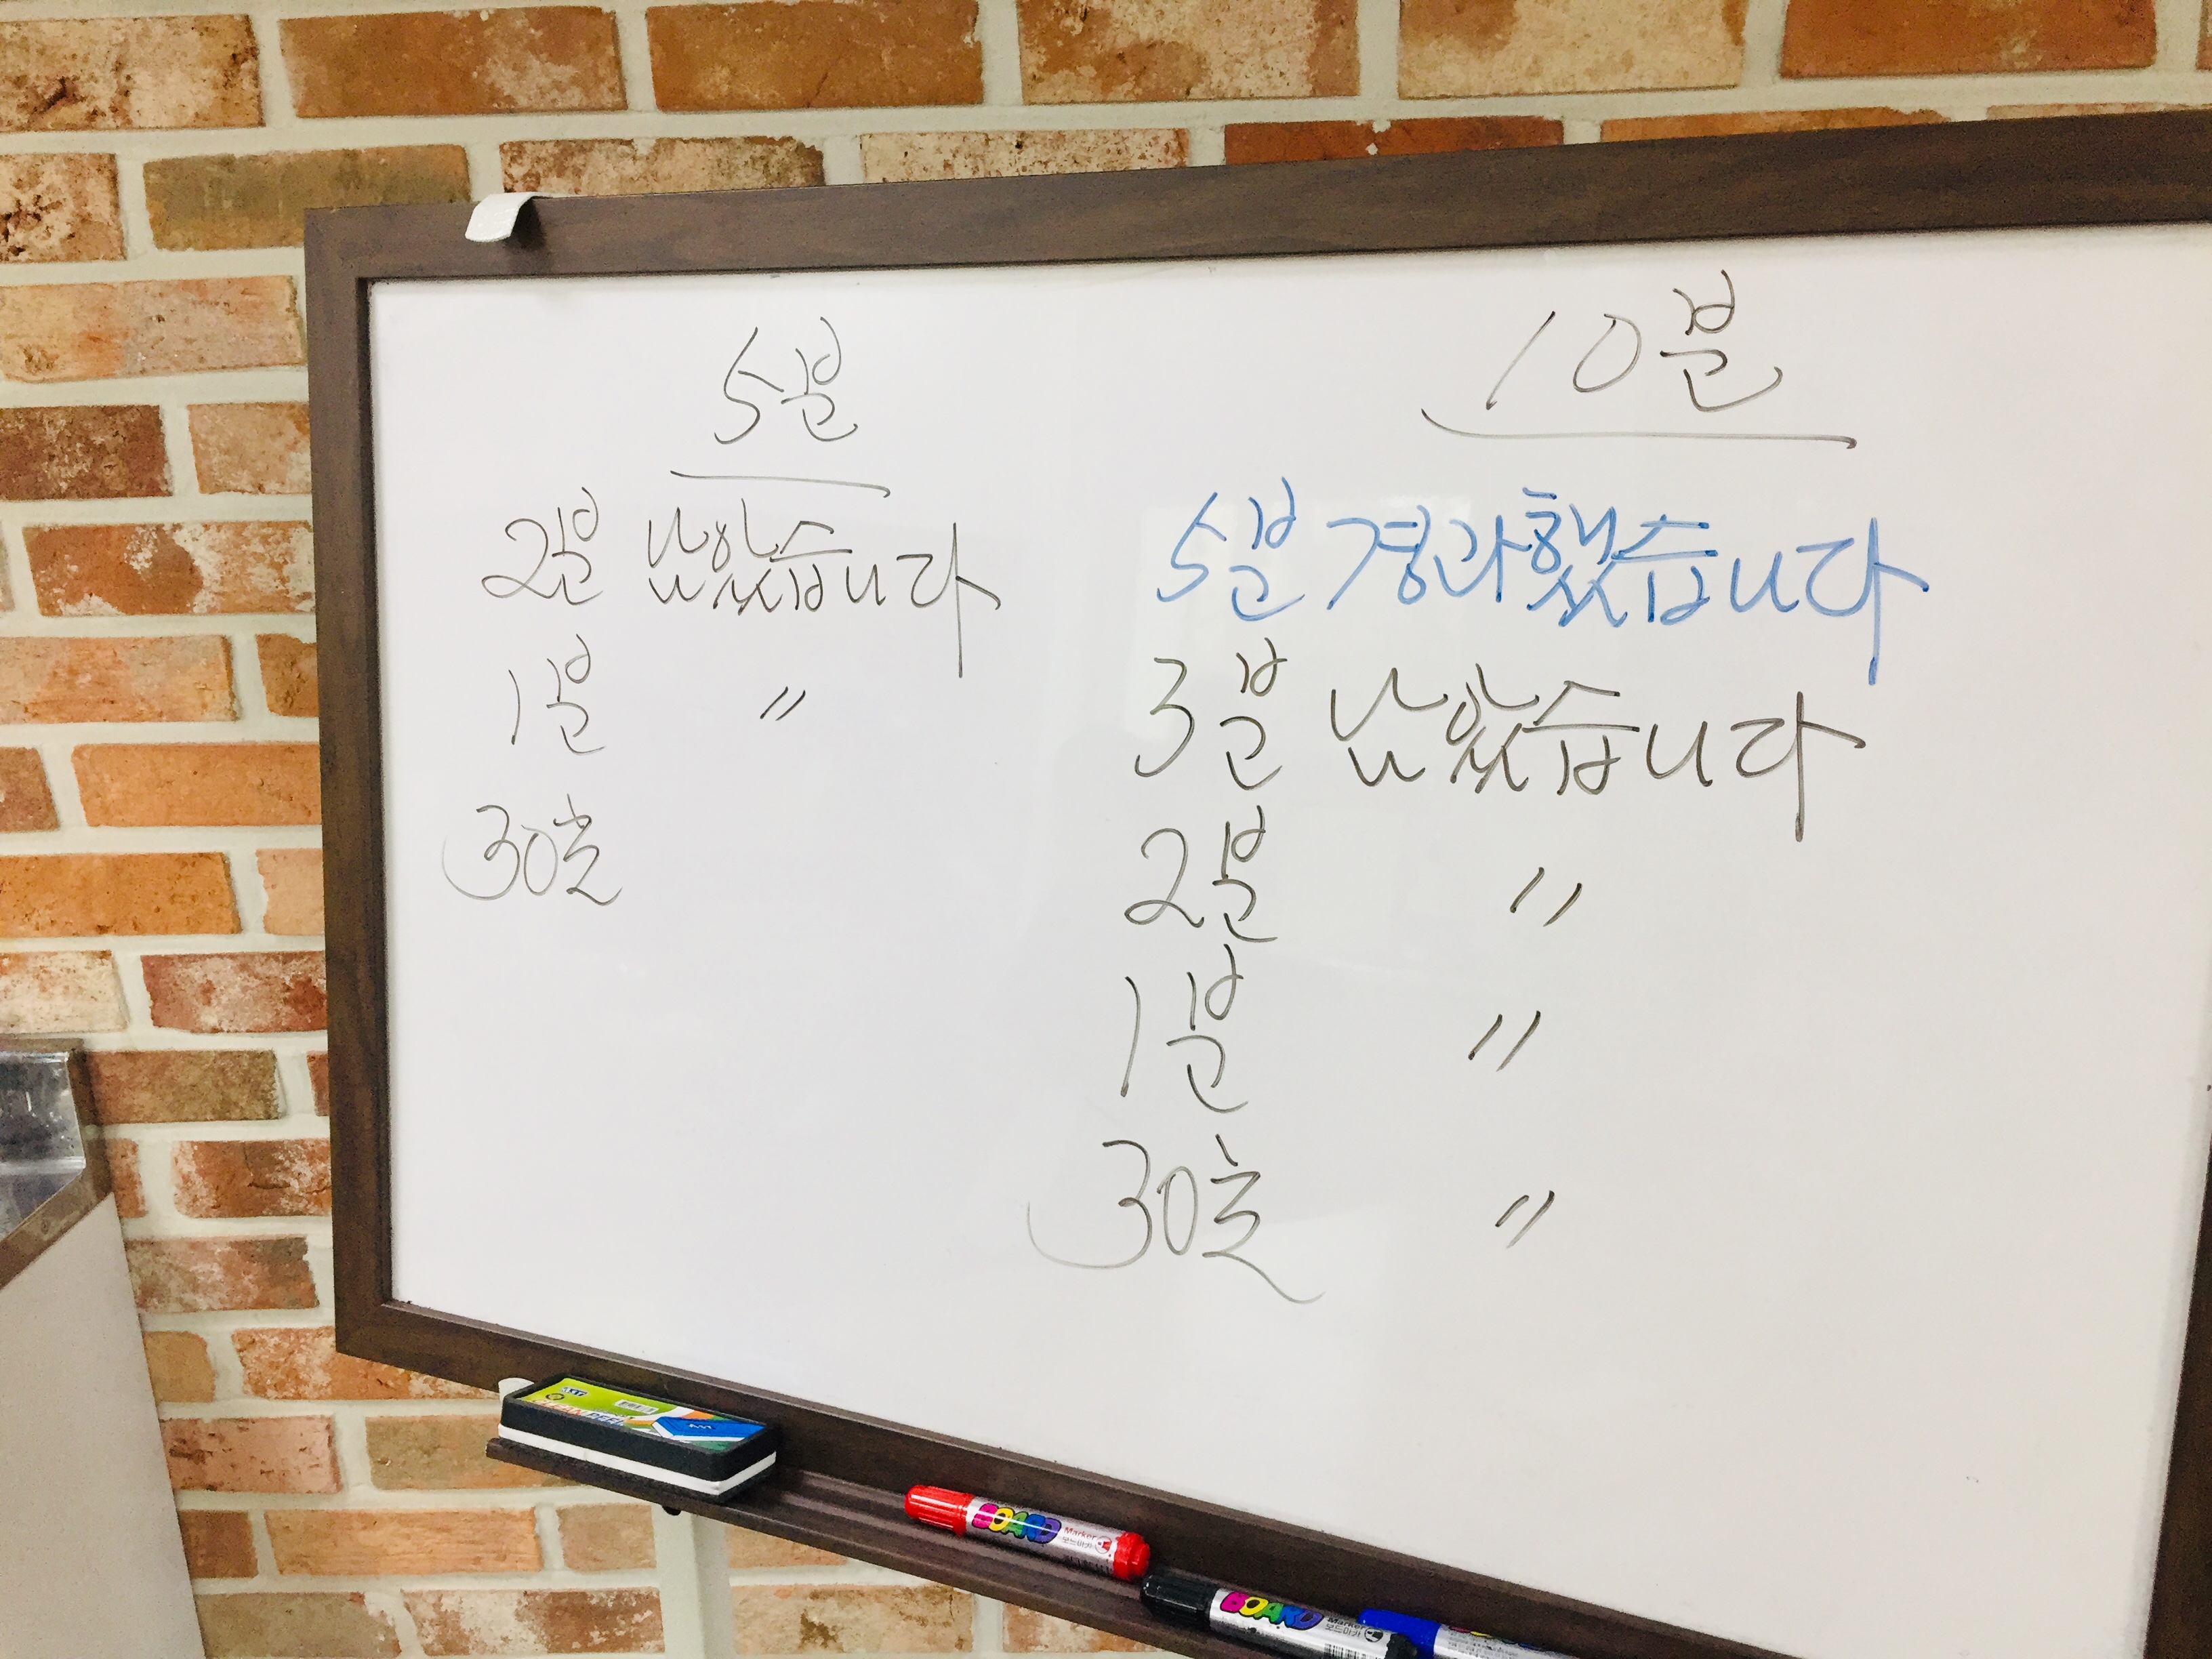 5분
2분 남았습니다
1분 〃
30초
10분
5분 경과했습니다
3분 남았습니다
2분 〃
1분 〃
30초 〃
BOARD Marker
보드마카
BOARD Marker
보드마카